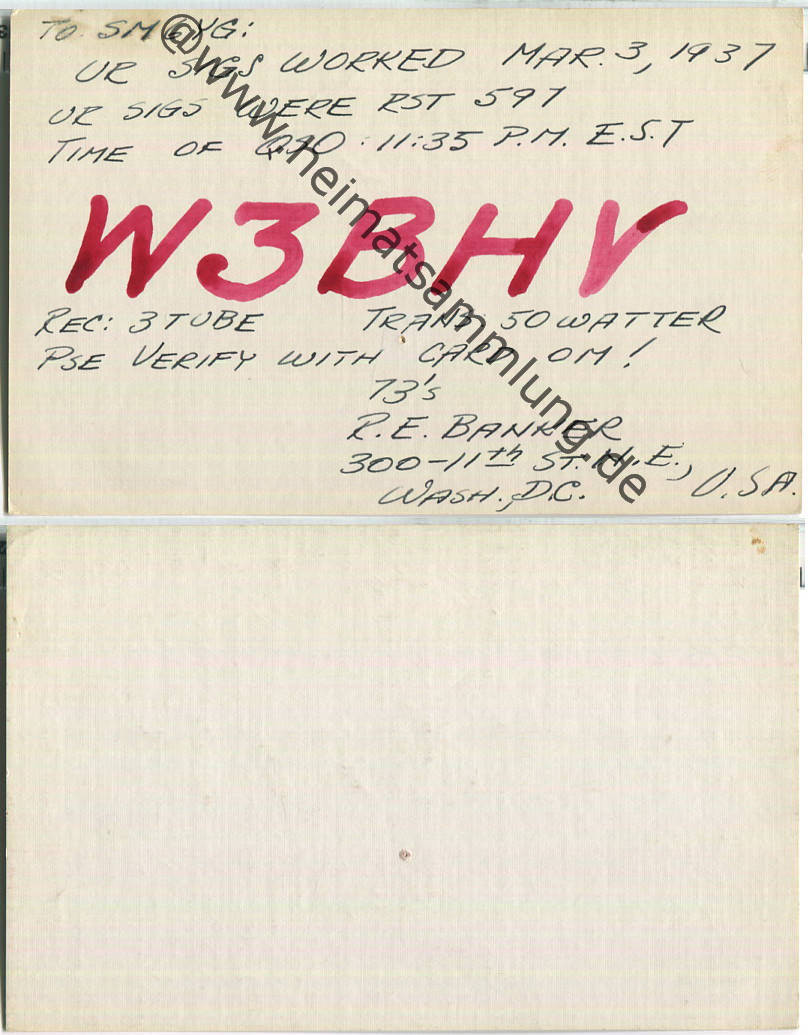 TO SM6YG:
UR SIGS WORKED MAR. 3, 1937
UR SIGS WERE RST 597
TIME OF QSO : 11:35 P.M. E.S.T
W3BHV
REC: 3 TUBE TRANS 50 WATTER
PSE VERIFY WITH CARD OM!
73's
R.E. BANKER
300-11th ST. N.E.,
WASH., D.C. U.S.A.
@www.heimatsammlung.de